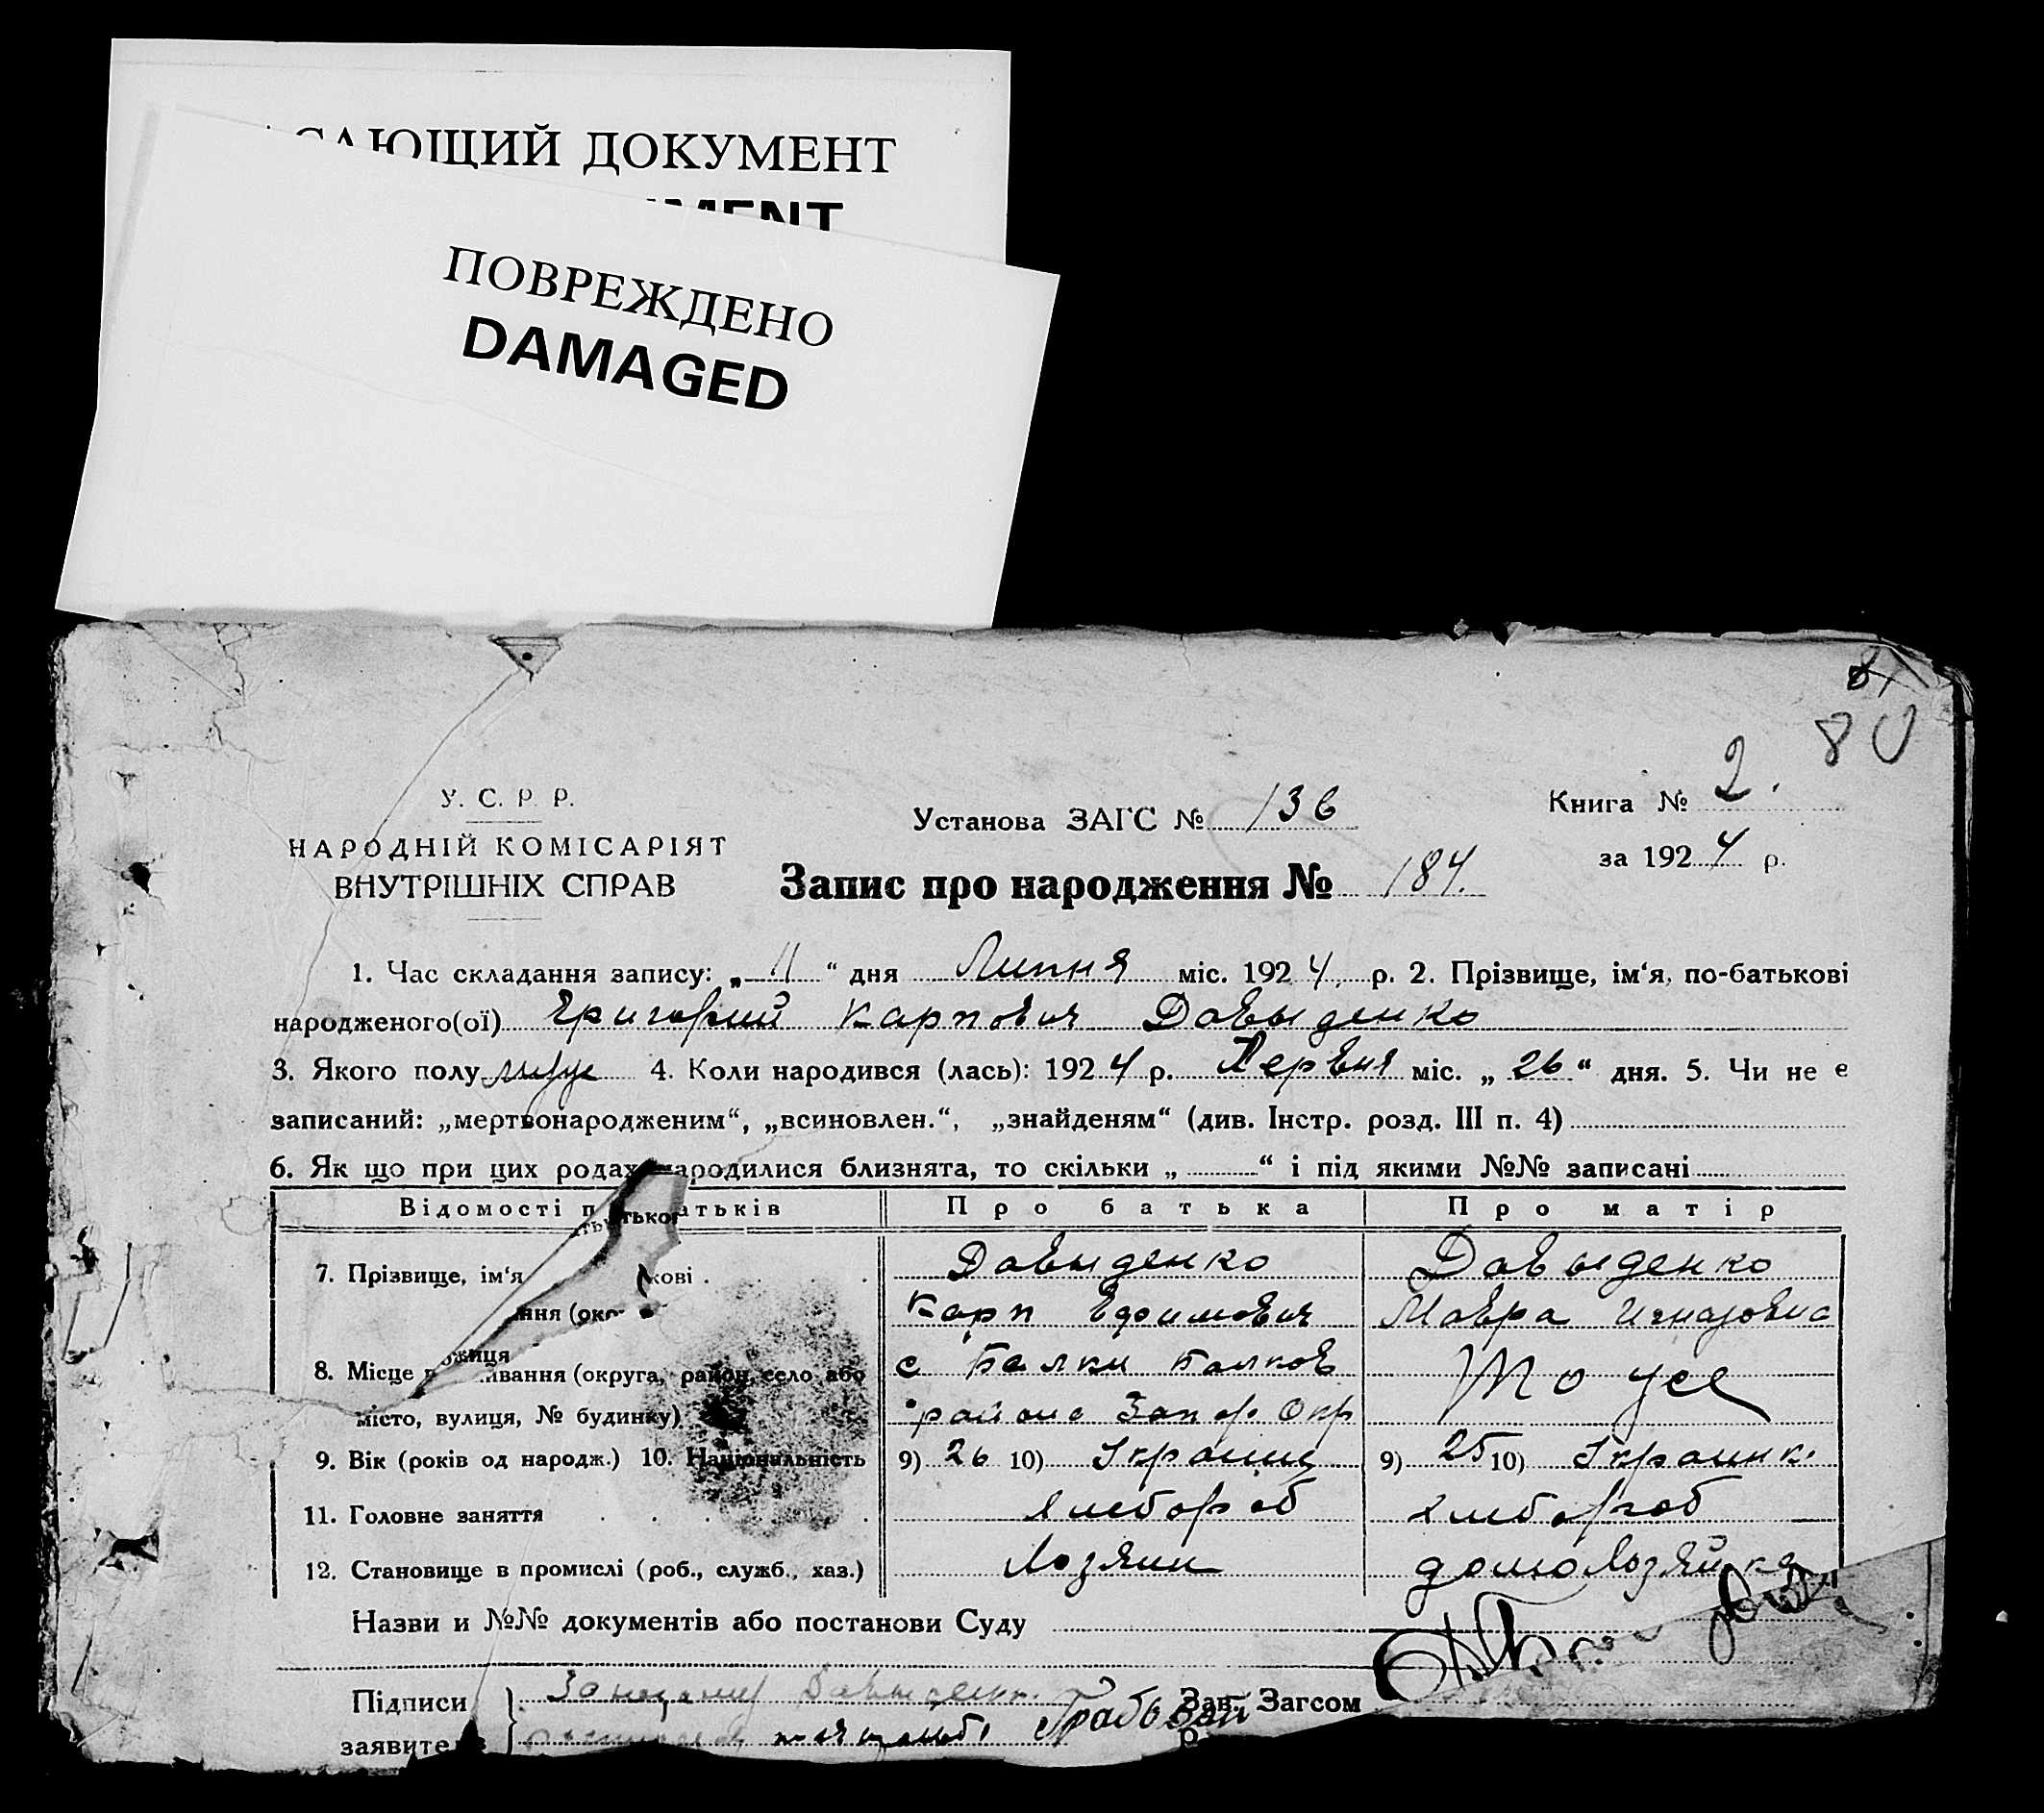 САЮЩИЙ ДОКУМЕНТ
MENT
ПОВРЕЖДЕНО
DAMAGED
81
80
У. С. Р. Р.
НАРОДНІЙ КОМІСАРІЯТ
ВНУТРІШНІХ СПРАВ
Установа ЗАГС № 136
Книга № 2.
за 1924 р.
Запис про народження № 184.
1. Час складання запису: „11“ дня Липня міс. 1924 р. 2. Прізвище, ім‘я, по-батькові
народженого(ої) Григорий Карпович Давыденко
3. Якого полу муж 4. Коли народився (лась): 1924 р. Червня міс. „26“ дня. 5. Чи не є
записаний: „мертвонародженим“, „всиновлен.“, „знайденям“ (див. Інстр. розд. III п. 4)
6. Як що при цих родах народилися близнята, то скільки „ “ і під якими №№ записані
Відомості п атьків Про батька Про матір
7. Прізвище, ім‘я кові Давыденко Давыденко
ння (око Карп Ефимович Мавра Игнатовна
8. Місце вання (округа, район, село або с Балки Балков То же
місто, вулиця, № будинку) района Запор Окр
9. Вік (років од народж.) 10. Національність 9) 26 10) Украинц 9) 25 10) Украинк.
11. Головне заняття хлебороб хлебороб
12. Становище в промислі (роб., служб., хаз.) Хозяин домохозяйка
Назви и №№ документів або постанови Суду
Підписи Давыденк Зав. Загсом
заявите